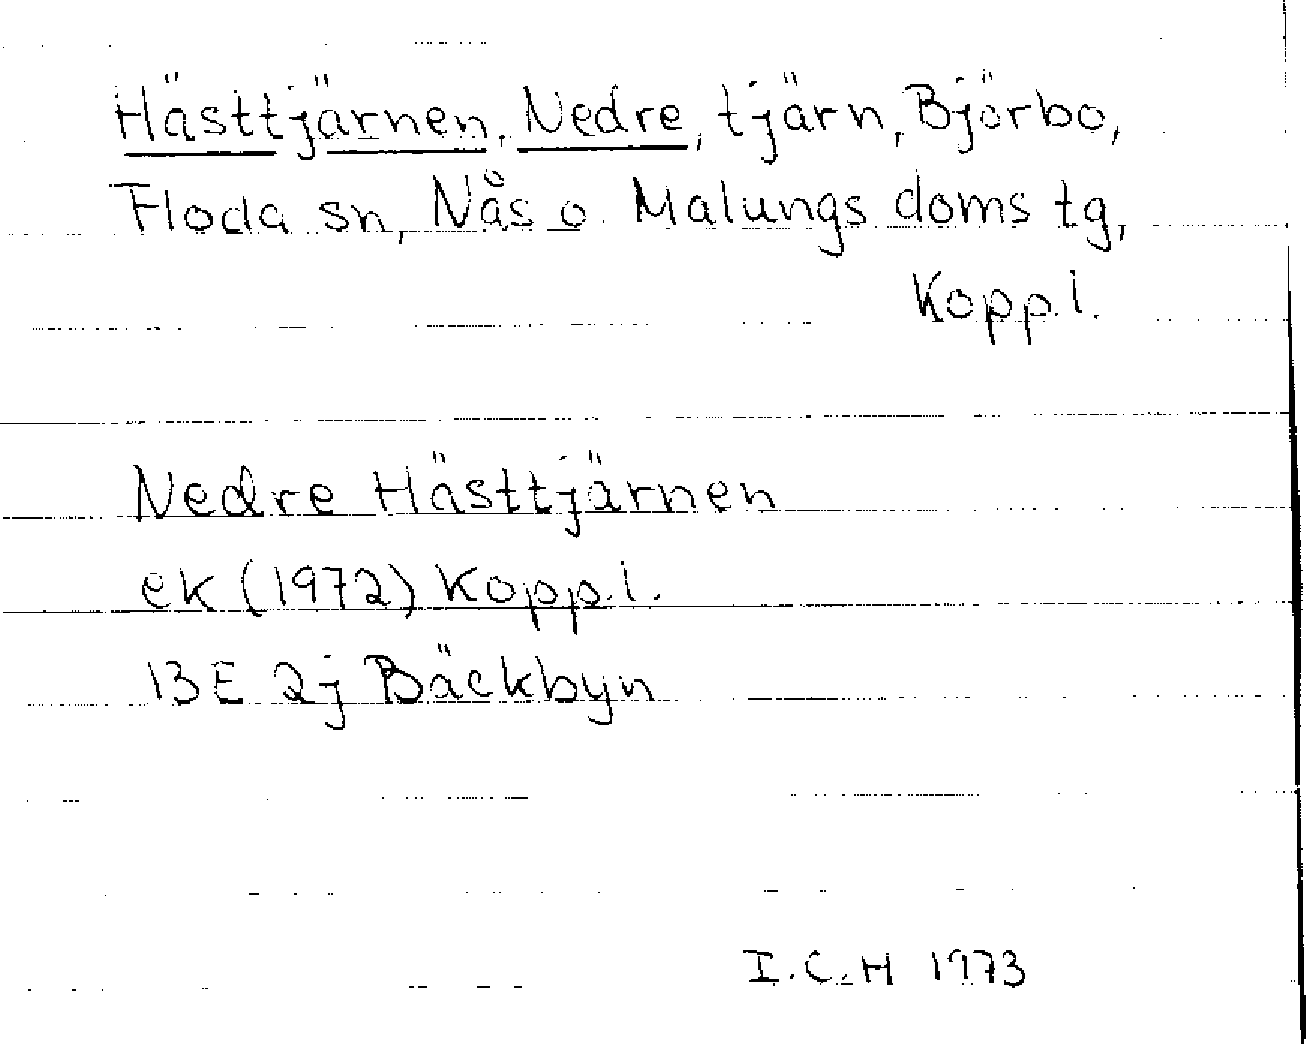 Hästtjärnen, Nedre, tjärn, Björbo,
Floda sn, Nås o. Malungs doms tg,
Kopp.l.
Nedre Hästtjärnen
ek (1972) Kopp.l.
13E 2j Bäckbyn
I.C.H 1973